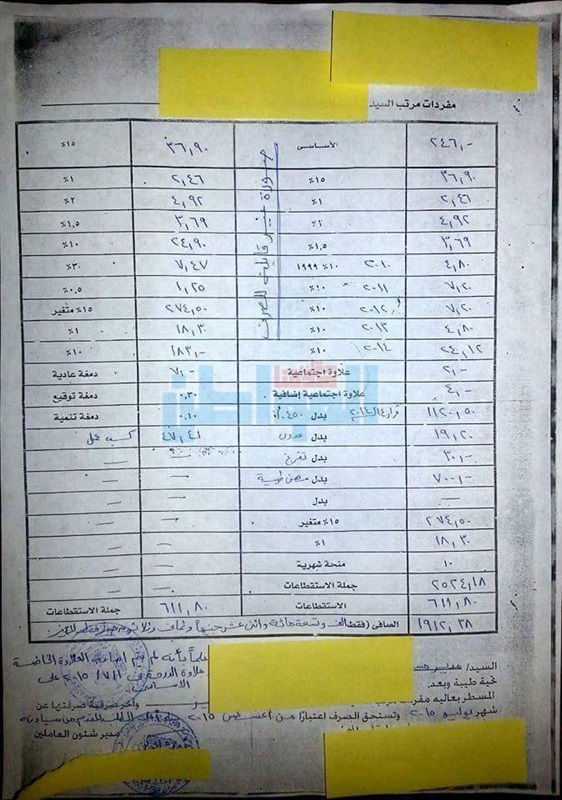 مفردات مرتب السيد
٢٤٦,- الأساسى ٣٦,٩٠ ١٥٪
٣٦,٩٠ ١٥٪ ٢,٤٦ ١٪
٢,٤٦ ١٪ ٤,٩٢ ٢٪
٤,٩٢ ٢٪ ٣,٦٩ ١,٥٪
٣,٦٩ ١,٥٪ ٢٤,٩٠ ١٠٪
٤,٨٠ ٢٠١٠ ١٠٪ ١٩٩٩ ٧,٤٧ ٣٠٪
٧,٢٠ ٢٠١١ ١٠٪ ١,٢٥ ٠,٥٪
٧,٢٠ ٢٠١٢ ١٠٪ ٢٧٤,٥٠ ١٥٪ متغير
٤,٨٠ ٢٠١٣ ١٠٪ ١٨,٣٠ ١٪
٢٤,١٢ ٢٠١٤ ١٠٪ ١٨٣,- ١٠٪
٢,- علاوة اجتماعية ٧,- دمغة عادية
٤,- علاوة اجتماعية إضافية ٠.٣٠ دمغة توقيع
١١٢٠,٥٠ بدل ٤٥٠٪ ٠.١٠ دمغة تنمية
١٩,٢٠ بدل عدوى ٤٧,٤١ كسب عمل
٣٠,- بدل تفرغ
٧٠٠,- بدل مهن طبية
— بدل —
٢٧٤,٥٠ ١٥٪ متغير — —
١٨,٣٠ ١٪ — —
١٠ منحة شهرية — —
٢٥٢٤,١٨ جملة الاستقطاعات — —
٦١١,٨٠ الاستقطاعات ٦١١,٨٠ جملة الاستقطاعات
١٩١٢,٣٨ الصافى (فقط الف وتسعة مائة واثن عشر جنيها
صورة غير قابلة للصرف
علما بأنه لم يتم اضافة العلاوة الخاصة
علاوة الدورية فى ٢٠١٥/٧/١ على
الاساسى
السيد/ مدير
تحية طيبة وبعد
المسطر بعاليه مفردات
وآخر صرفية صرفتها عن
شهر يوليو ٢٠١٥ وتستحق الصرف اعتبارًا من أغسطس ٢٠١٥ الطلب المقدم من سيادته
مدير شئون العاملين